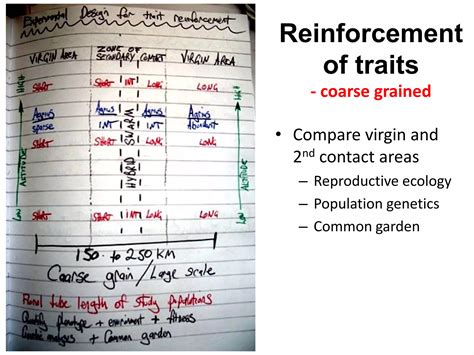 Experimental Design for trait reinforcement
VIRGIN AREA
ZONE OF
SECONDARY CONTACT
VIRGIN AREA
HIGH
SHORT SHORT INT LONG LONG HIGH
Agrius Agrius Agrius Agrius
sparse INT INT LONG Abundant
SHORT SHORT LONG LONG
HYBRID SWARM
ALTITUDE
ALTITUDE
SHORT SHORT INT LONG LONG
150 to 250 KM
Coarse grain / Large scale
Floral tube length of study populations
Quantify phenotype + environment + fitness
Genetic analyses + Common garden
Reinforcement
of traits
- coarse grained
• Compare virgin and
2nd contact areas
– Reproductive ecology
– Population genetics
– Common garden